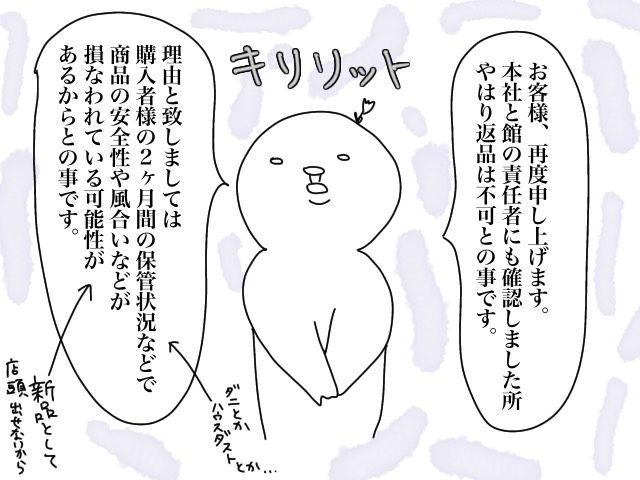 キリリット
お客様、再度申し上げます。
本社と館の責任者にも確認しました所
やはり返品は不可との事です。
理由と致しましては
購入者様の２ヶ月間の保管状況などで
商品の安全性や風合いなどが
損なわれている可能性が
あるからとの事です。
ダニとか
ハウスダストとか…
新品として
店頭出せないから